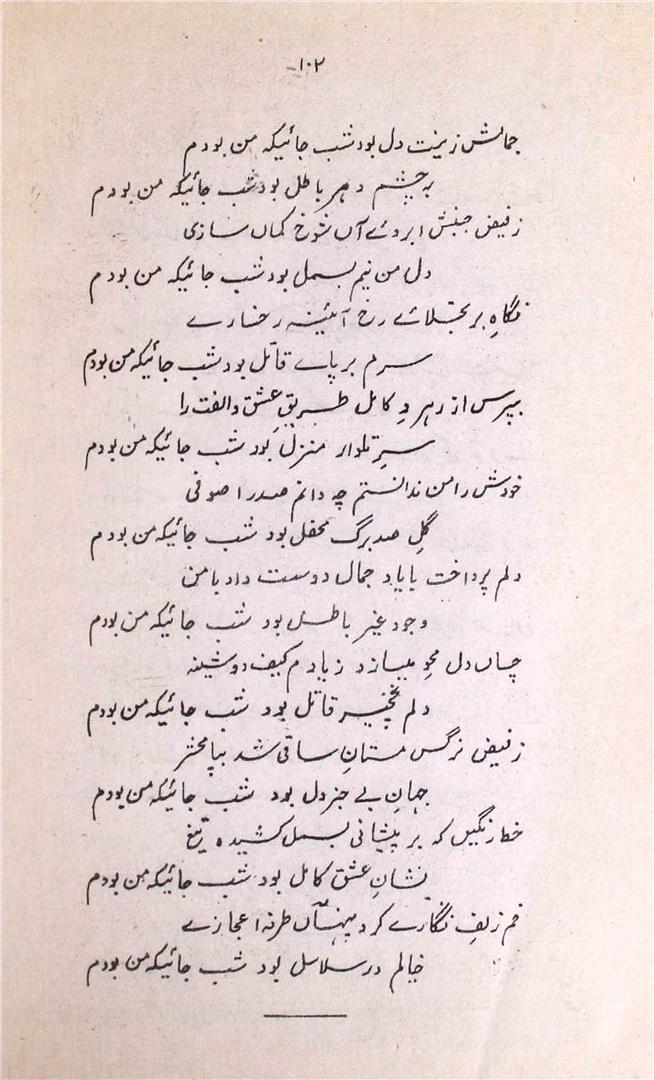 ۱۰۲
جمالش زینت دل بود شب جائیکہ من بودم
بہ چشم دہر باطل بود شب جائیکہ من بودم
ز فیض جنبش ابروئے آں شوخ کماں سازی
دل من نیم بسمل بود شب جائیکہ من بودم
نگاہِ بر تجلائے رخ آئینہ رخسارے
سرم بر پاے قاتل بود شب جائیکہ من بودم
بپرس از رہروِ کامل طریقِ عشق والفت را
سرِ تلوار منزل بود شب جائیکہ من بودم
خودش را من ندانستم چہ دانم صدرا صوفی
گلِ صد برگ محفل بود شب جائیکہ من بودم
دلم پرداخت با یاد جمال دوست داد با من
وجود غیر باطل بود شب جائیکہ من بودم
چساں دل محو میسازد ز یادم کیف دوشینہ
دلم نخچیر قاتل بود شب جائیکہ من بودم
ز فیض نرگس مستانِ ساقی شد بپا محشر
جہانِ بے جز دل بود شب جائیکہ من بودم
خط رنگیں کہ بر پیشانی بسمل کشیدہ تیغ
نشانِ عشق کامل بود شب جائیکہ من بودم
خم زلفِ نگارے کرد آں طرفہ اعجازے
خیالم در سلاسل بود شب جائیکہ من بودم